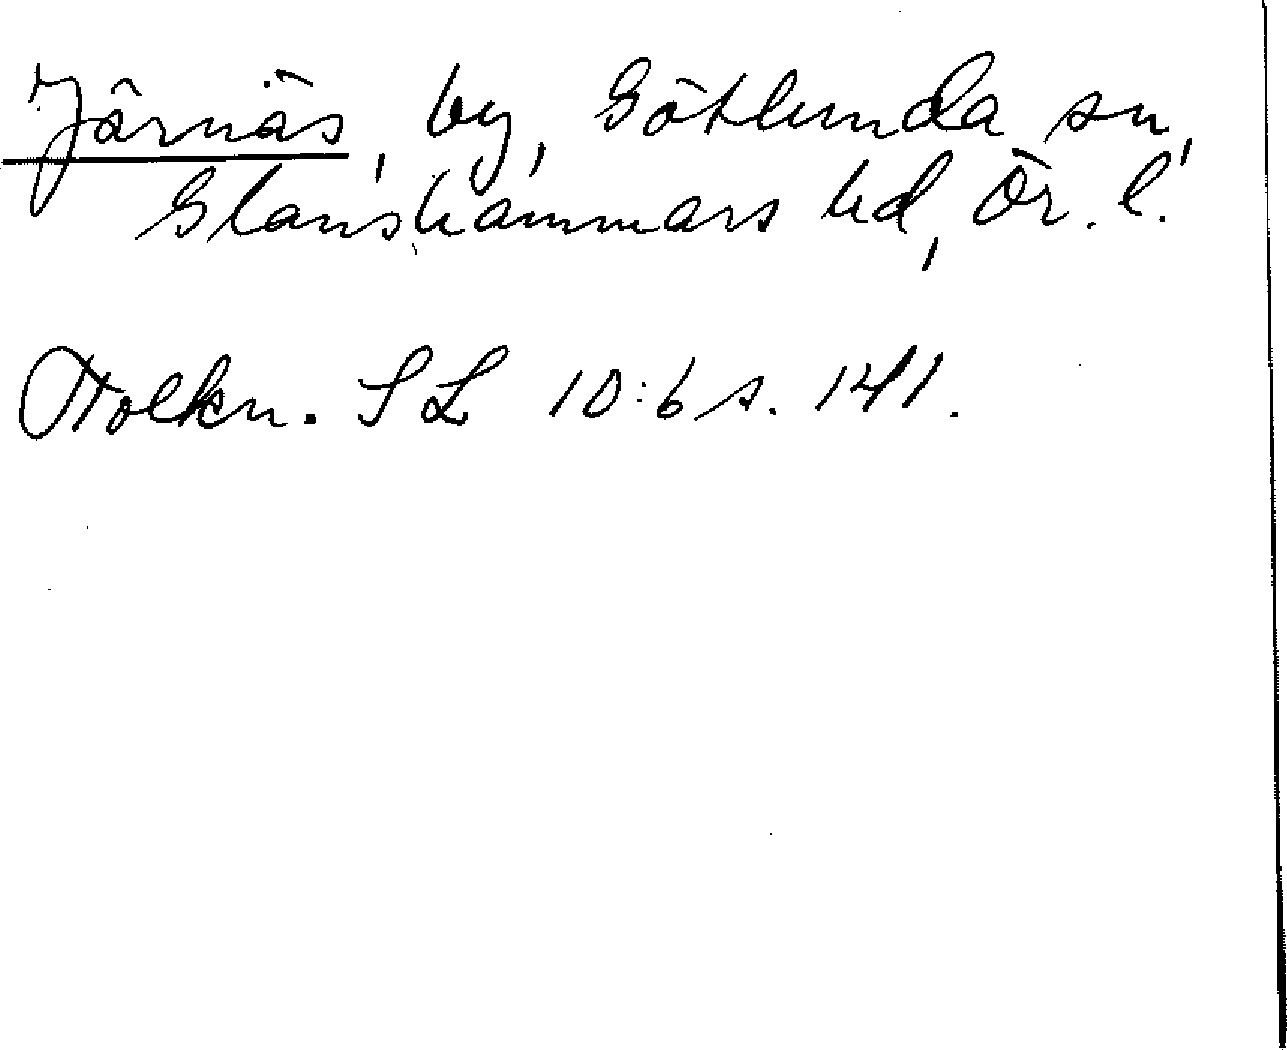 Järnäs, by, Götlunda sn,
Glanshammars hd, Ör. l.
Holkn. SL 10:6 s. 141.